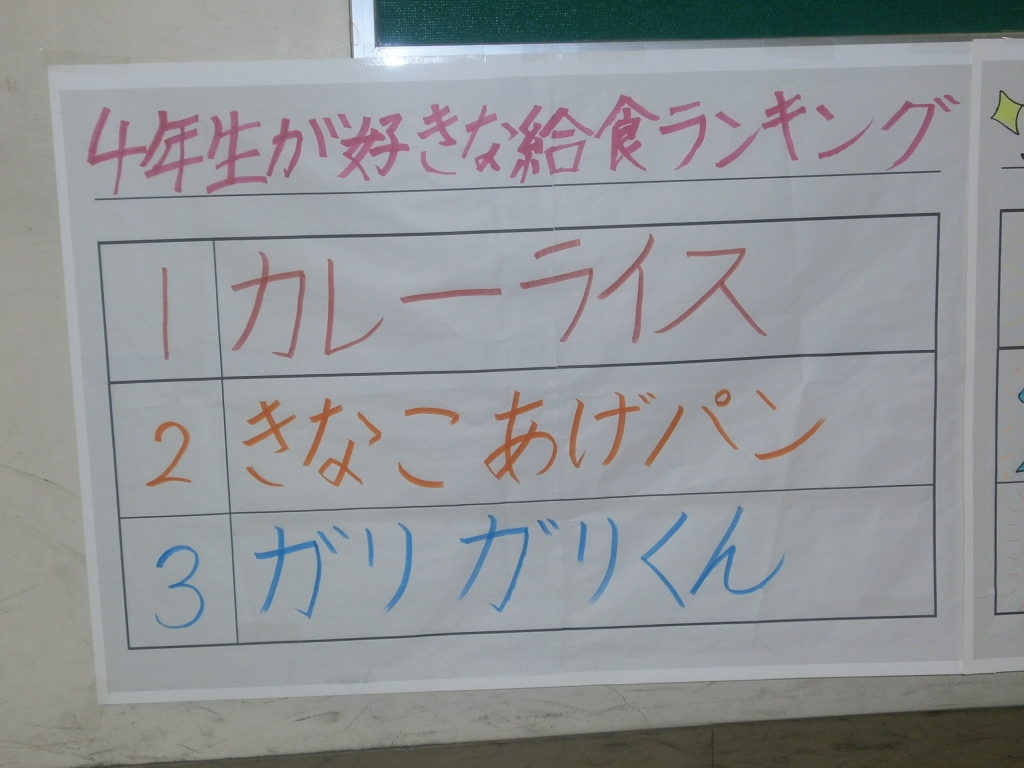 4年生が好きな給食ランキング
1 カレーライス
2 きなこあげパン
3 ガリガリくん